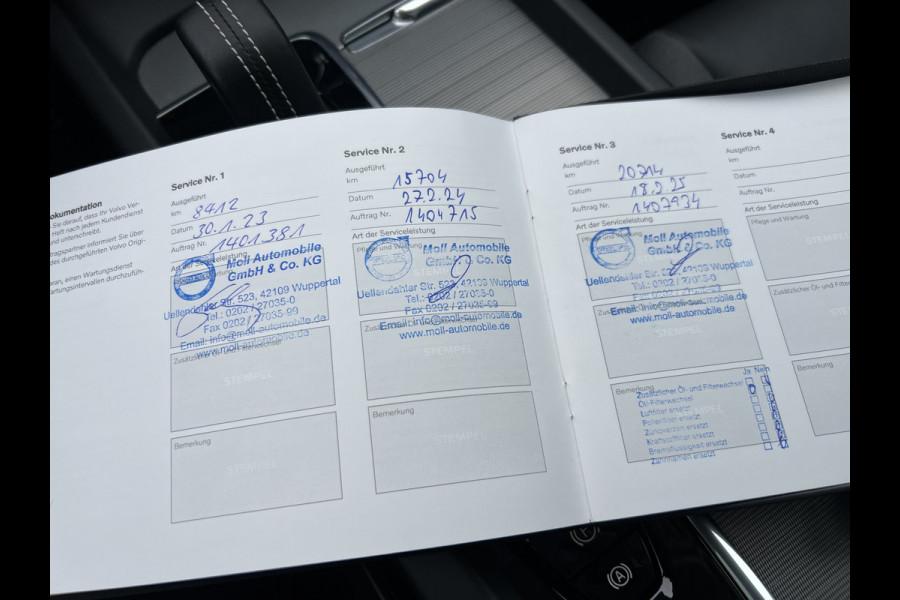 okumentation
Sie darauf, dass Ihr Volvo Ver-
haft nach jedem Kundendienst
und unterschreibt.
rtragspartner informiert Sie über
des durchgeführten Volvo Origi-
aran, einen Wartungsdienst
artungsintervallen durchzufüh-
Service Nr. 1
Ausgeführt
km 8412
Datum 30.1.23
Auftrag Nr. 1401381
Art der Serviceleistung
Moll Automobile
GmbH & Co. KG
Uellendahler Str. 523, 42109 Wuppertal
Tel.: 0202 / 27035-0
Fax 0202 / 27035-99
Email: info@moll-automobile.de
www.moll-automobile.de
STEMPEL
Bemerkung
STEMPEL
Service Nr. 2
Ausgeführt
km 15704
Datum 27.2.24
Auftrag Nr. 1404715
Art der Serviceleistung
Pflege und Wartung
Moll Automobile
GmbH & Co. KG
STEMPEL
Uellendahler Str. 523, 42109 Wuppertal
Tel.: 0202 / 27035-0
Fax 0202 / 27035-99
Email: info@moll-automobile.de
www.moll-automobile.de
STEMPEL
Bemerkung
STEMPEL
Service Nr. 3
Ausgeführt
km 20714
Datum 18.2.25
Auftrag Nr. 1407934
Art der Serviceleistung
Moll Automobile
GmbH & Co. KG
Uellendahler Str. 523, 42109 Wuppertal
Tel.: 0202 / 27035-0
Email: info@moll-automobile.de
www.moll-automobile.de
Bemerkung
Ja Nein
Zusätzlicher Öl- und Filterwechsel
Öl-/Filterwechsel
Luftfilter ersetzt
Pollenfilter ersetzt
Zündkerzen ersetzt
Kraftstofffilter ersetzt
Bremsflüssigkeit ersetzt
Zahnriemen ersetzt
Service Nr. 4
Ausgeführt
km
Datum
Auftrag Nr.
Art der Serviceleistung
Pflege und Wartung
STEMPEL
Zusätzlicher Öl- und Filter
Bemerkung